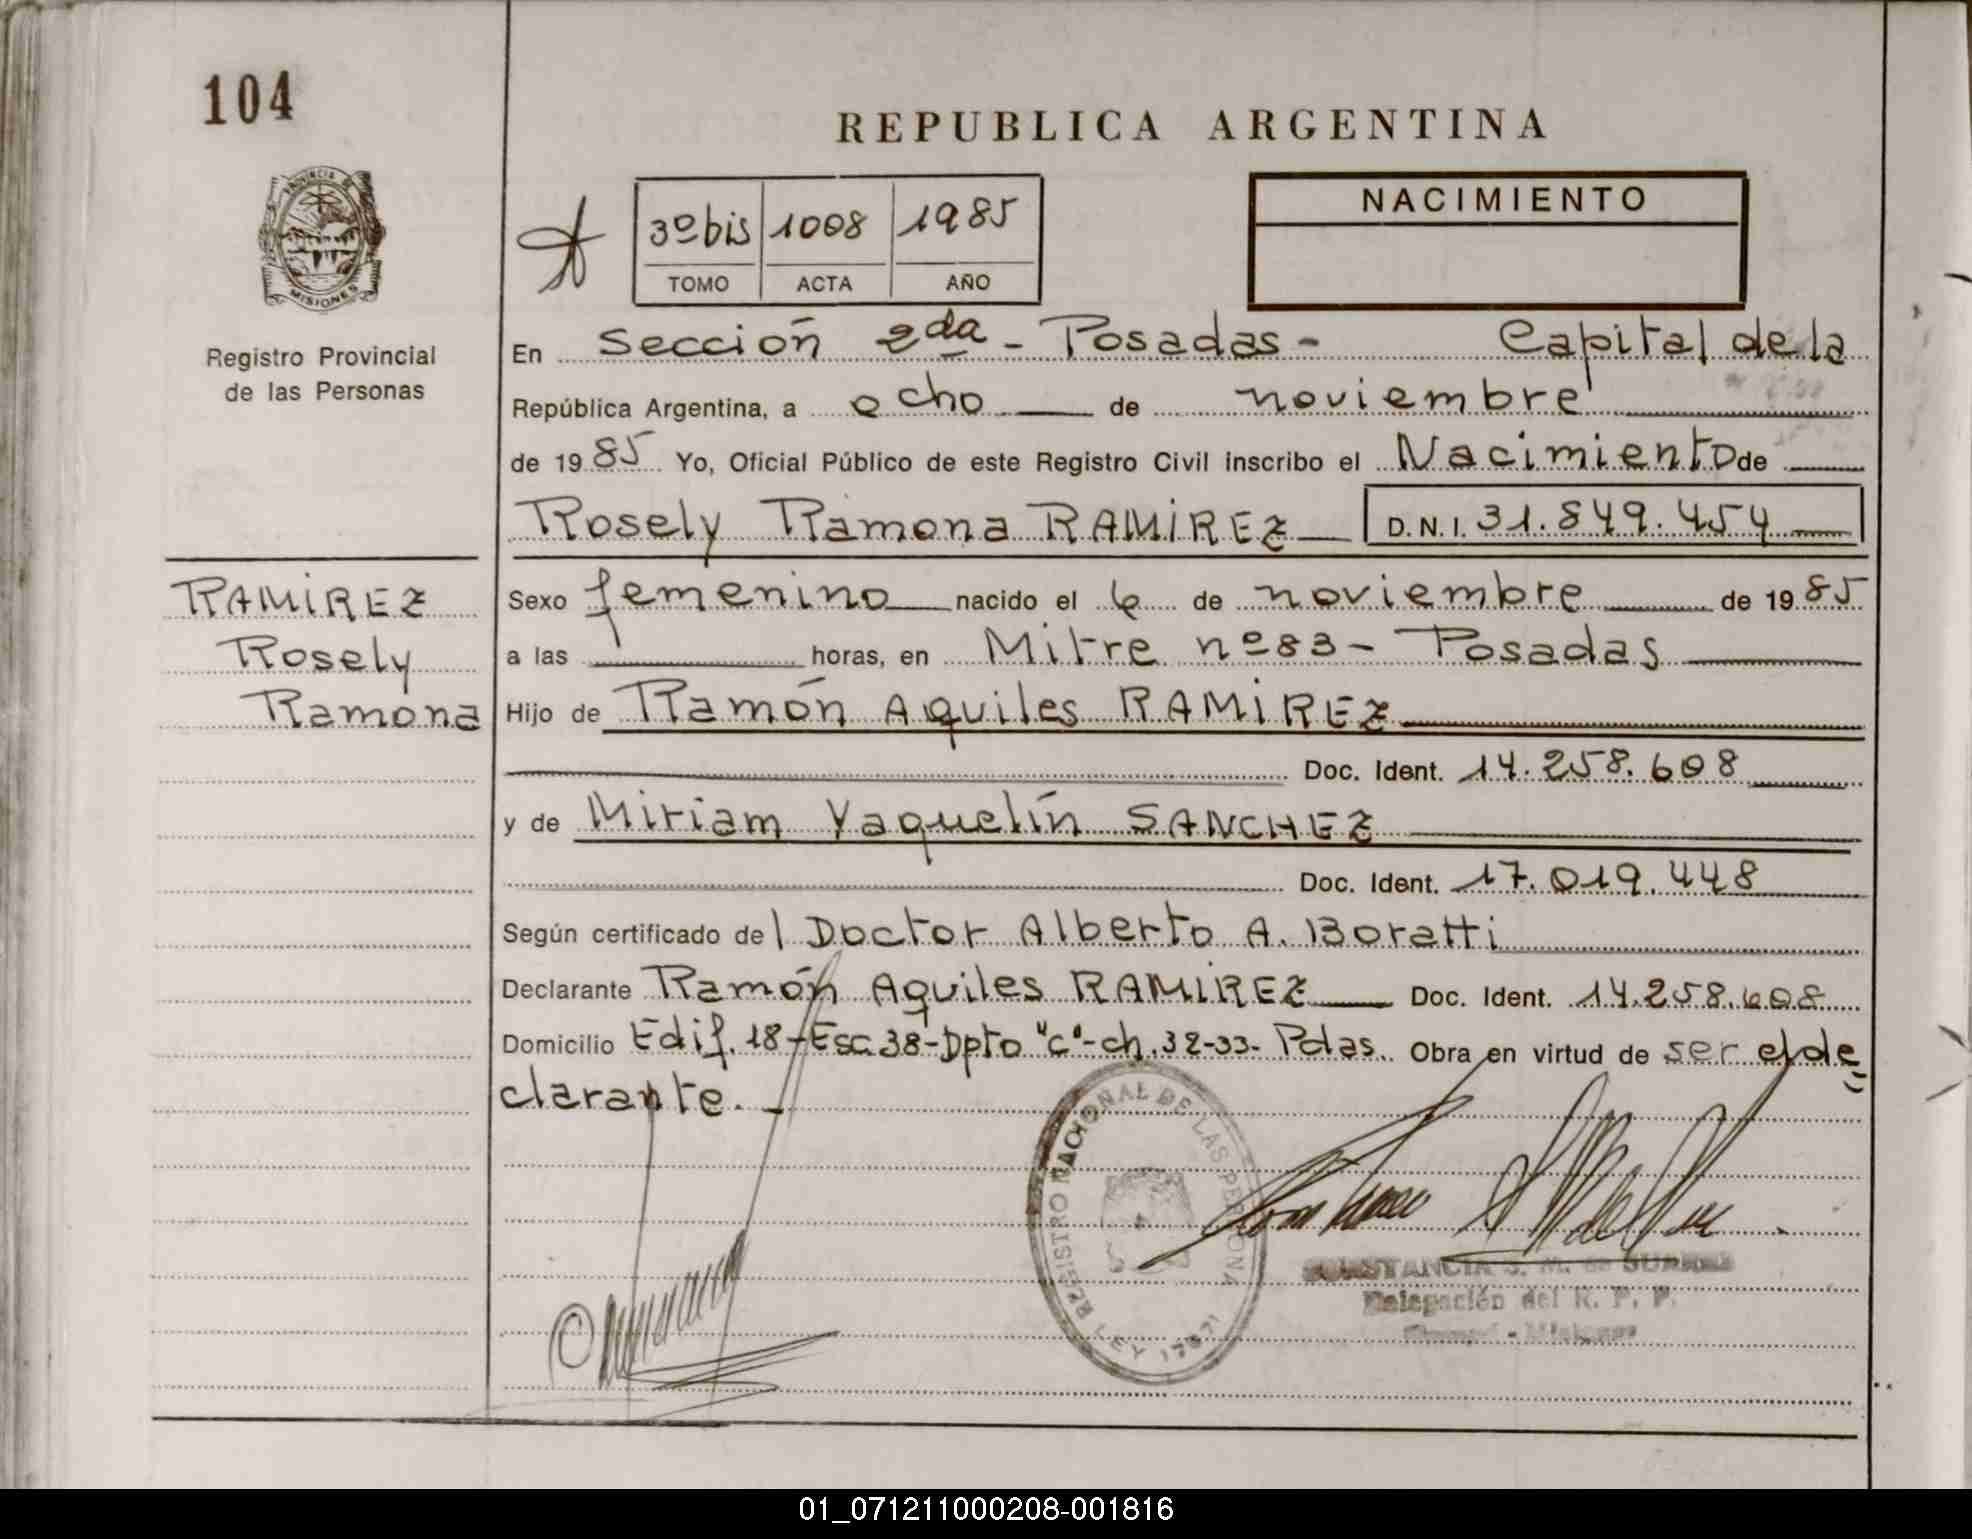 104
REPUBLICA ARGENTINA
PROVINCIA DE
MISIONES
Registro Provincial
de las Personas
3º bis 1008 1985
TOMO ACTA AÑO
NACIMIENTO
En Sección 2da - Posadas - Capital de la
República Argentina, a ocho de noviembre
de 1985 Yo, Oficial Público de este Registro Civil inscribo el Nacimiento de
Rosely Ramona RAMIREZ D.N.I. 31.849.454
RAMIREZ
Rosely
Ramona
Sexo femenino nacido el 6 de noviembre de 1985
a las horas, en Mitre nº 83 - Posadas
Hijo de Ramón Aquiles RAMIREZ
Doc. Ident. 14.258.608
y de Miriam Yaquelín SANCHEZ
Doc. Ident. 17.019.448
Según certificado del Doctor Alberto A. Boratti
Declarante Ramón Aquiles RAMIREZ Doc. Ident. 14.258.608
Domicilio Edif. 18-Esc.38-Dpto "c"-ch.32-33- Pdas. Obra en virtud de ser el de=
clarante.-
REGISTRO NACIONAL DE LAS PERSONA
LEY 17671
CONSTANCIA S. M. de SUAREZ
Delegación del R. P. P.
01_071211000208-001816